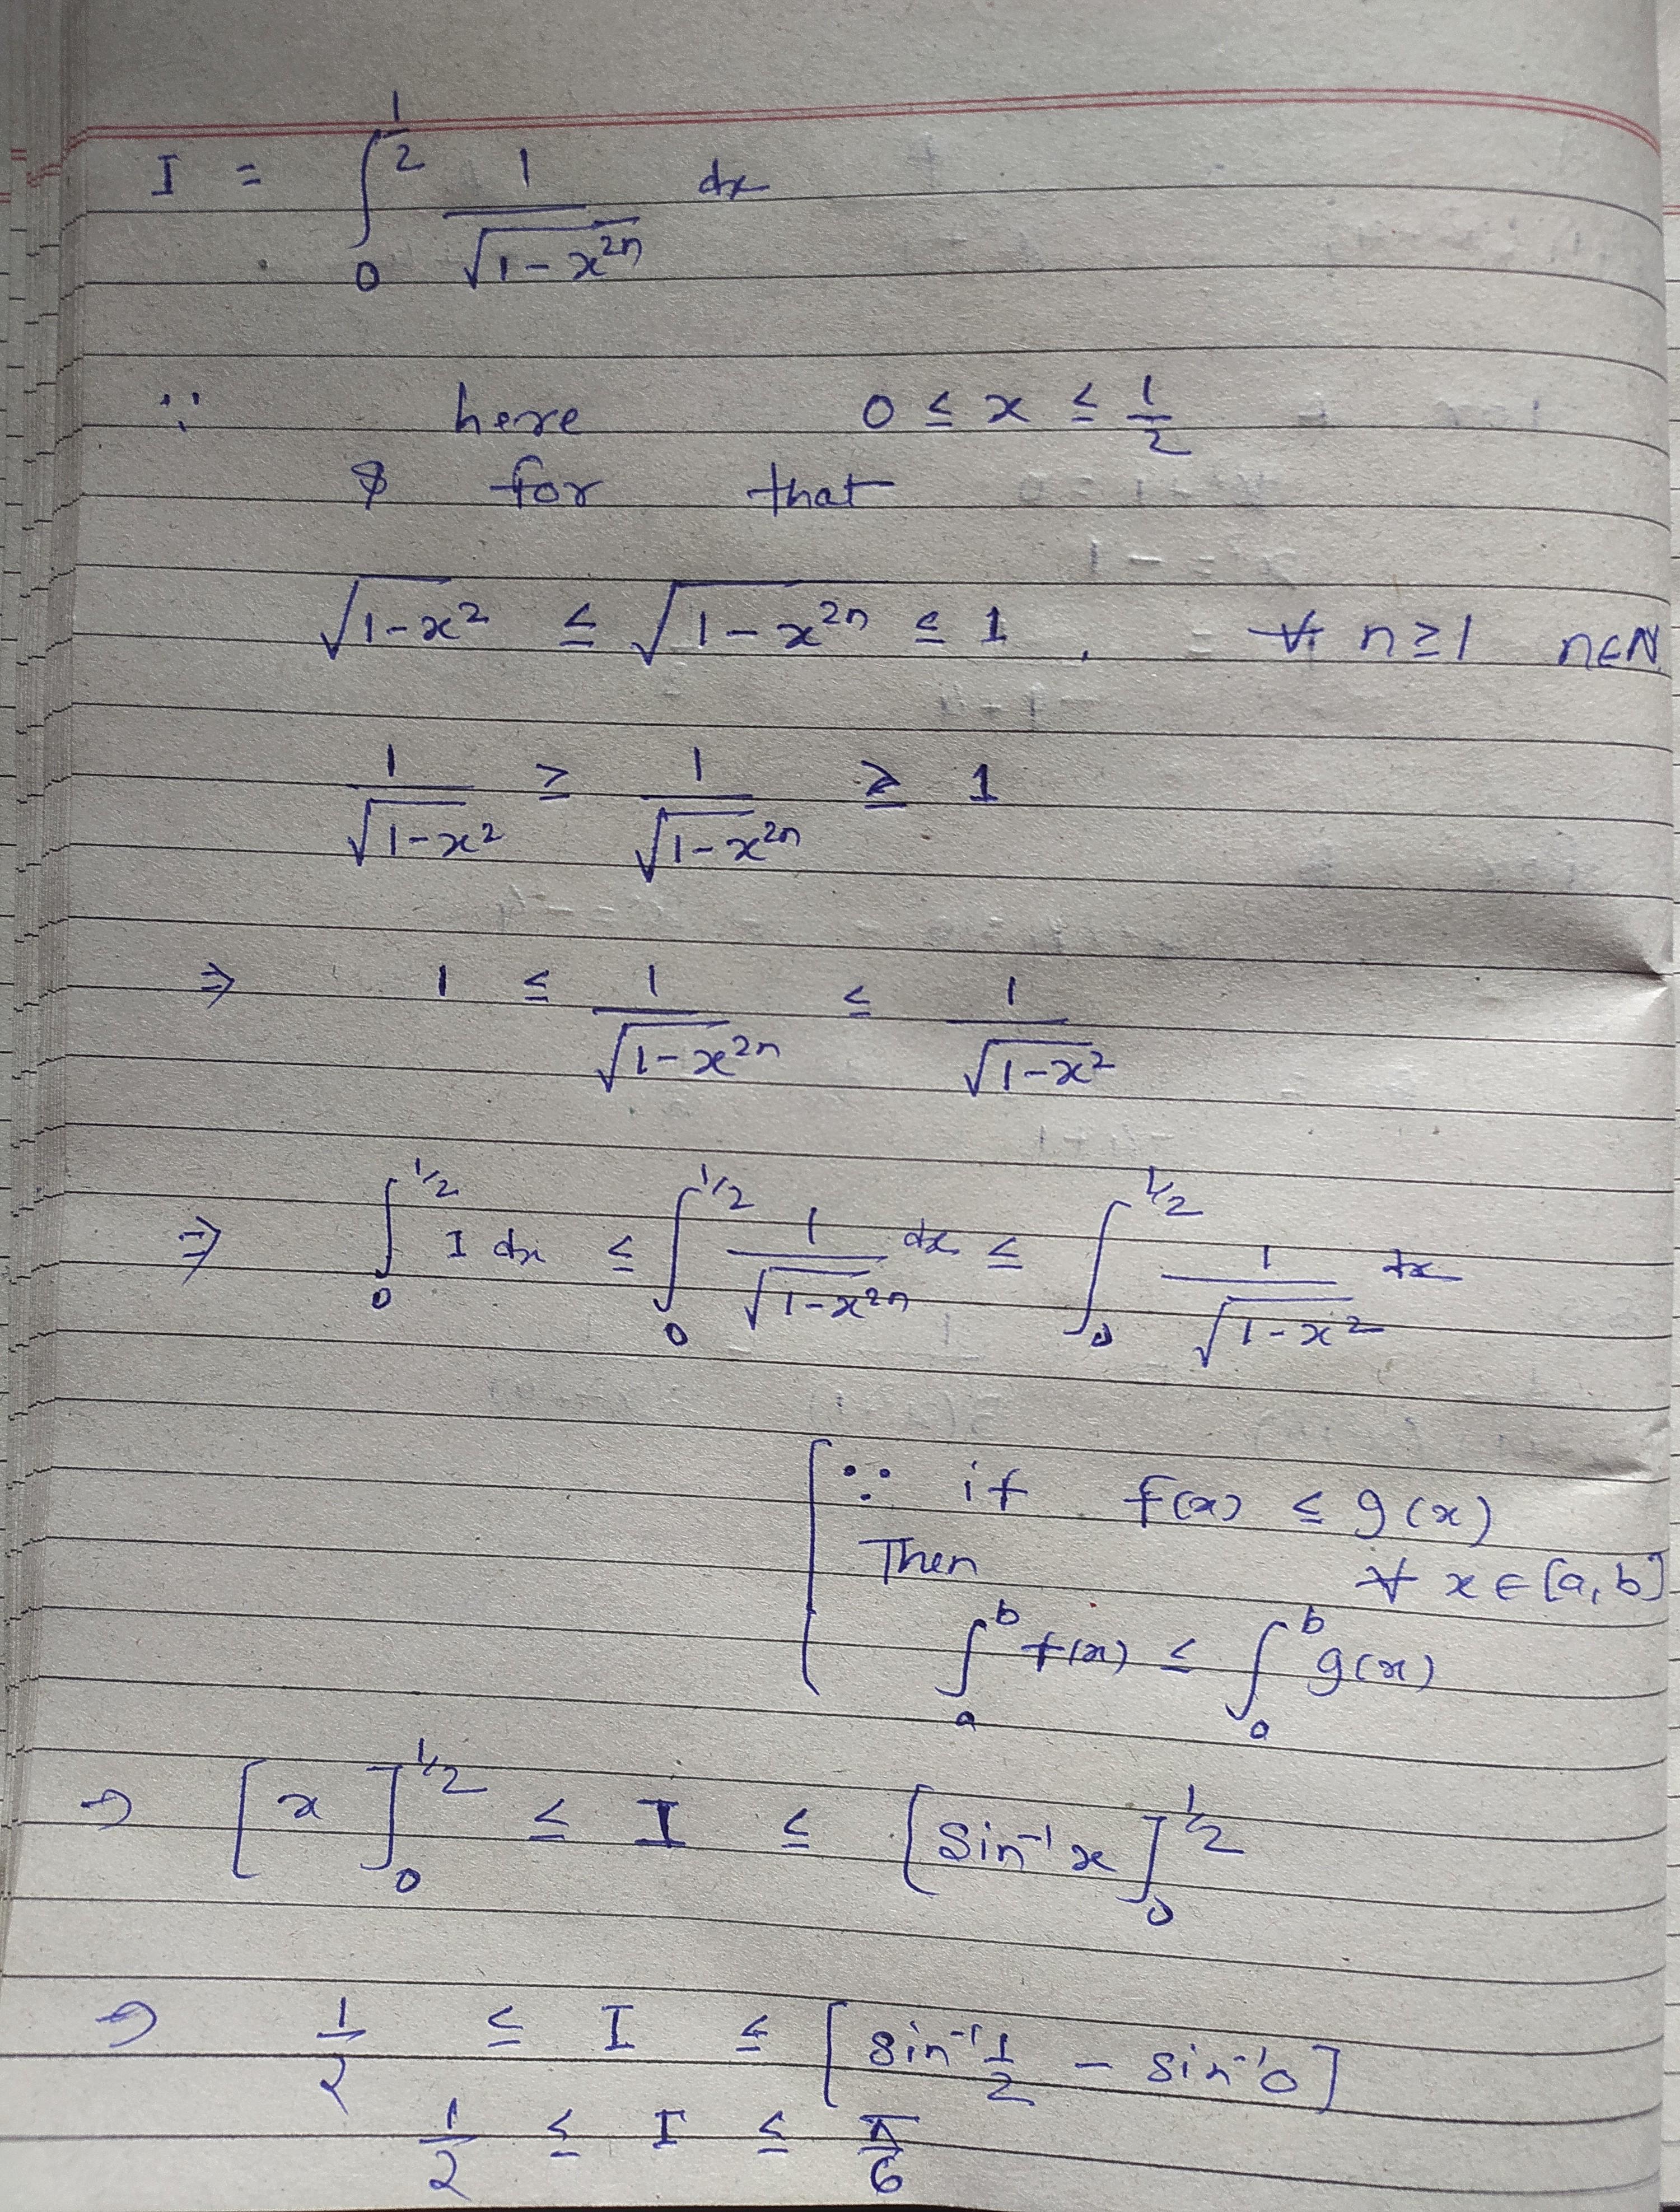 I = ∫₀^{1/2} 1/√(1-x^{2n}) dx
∵ here 0 ≤ x ≤ 1/2
& for that
√(1-x²) ≤ √(1-x^{2n}) ≤ 1 , ∀ n≥1 n∈N
1/√(1-x²) ≥ 1/√(1-x^{2n}) ≥ 1
⇒ 1 ≤ 1/√(1-x^{2n}) ≤ 1/√(1-x²)
⇒ ∫₀^{1/2} 1 dx ≤ ∫₀^{1/2} 1/√(1-x^{2n}) dx ≤ ∫₀^{1/2} 1/√(1-x²) dx
[∵ if f(x) ≤ g(x)
Then ∀ x∈[a,b]
∫ₐ^b f(x) ≤ ∫ₐ^b g(x)
⇒ [x]₀^{1/2} ≤ I ≤ [Sin⁻¹x]₀^{1/2}
⇒ 1/2 ≤ I ≤ [Sin⁻¹ 1/2 - Sin⁻¹0]
1/2 ≤ I ≤ π/6